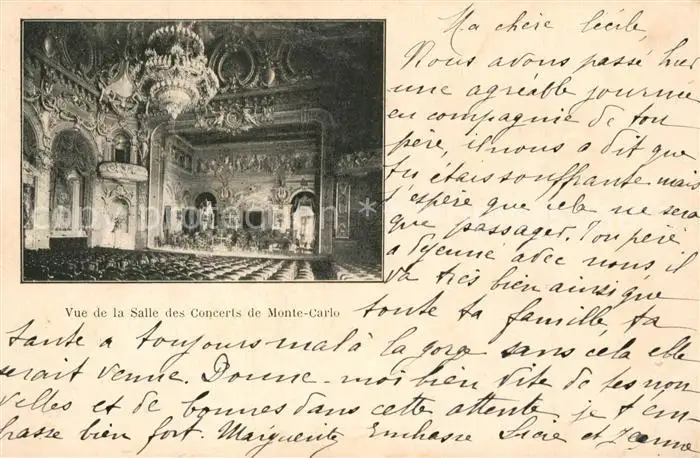 Ma chère Cécile,
Nous avons passé hier
une agréable journée
en compagnie de ton
père, il nous a dit que
tu étais souffrante mais
j'espère que cela ne sera
que passager. Ton père
a déjeuné avec nous il
va très bien ainsi que
Vue de la Salle des Concerts de Monte-Carlo
toute ta famille, ta
tante a toujours mal à la gorge sans cela elle
serait venue. Donne-moi bien vite de tes nou
velles et de bonnes dans cette attente je t'em
brasse bien fort. Marguerite Embrasse et Jeanne